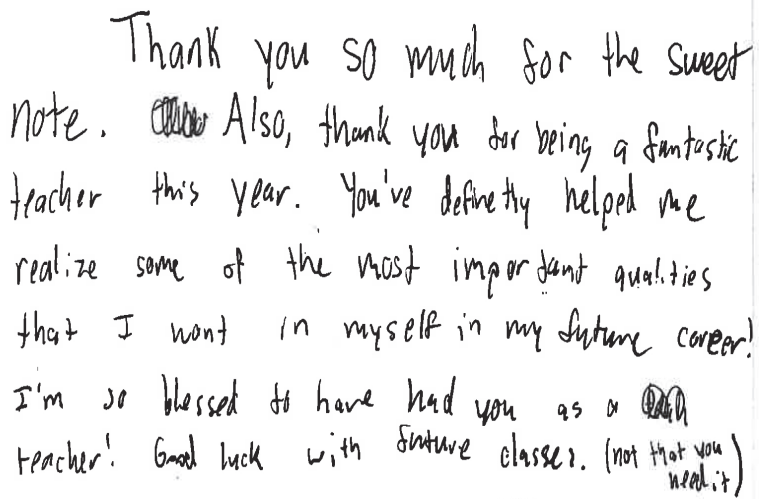 Thank you so much for the sweet
note. Also, thank you for being a fantastic
teacher this year. You've definetly helped me
realize some of the most important qualities
that I want in myself in my future career!
I'm so blessed to have had you as a
teacher! Good luck with future classes. (not that you
need it)